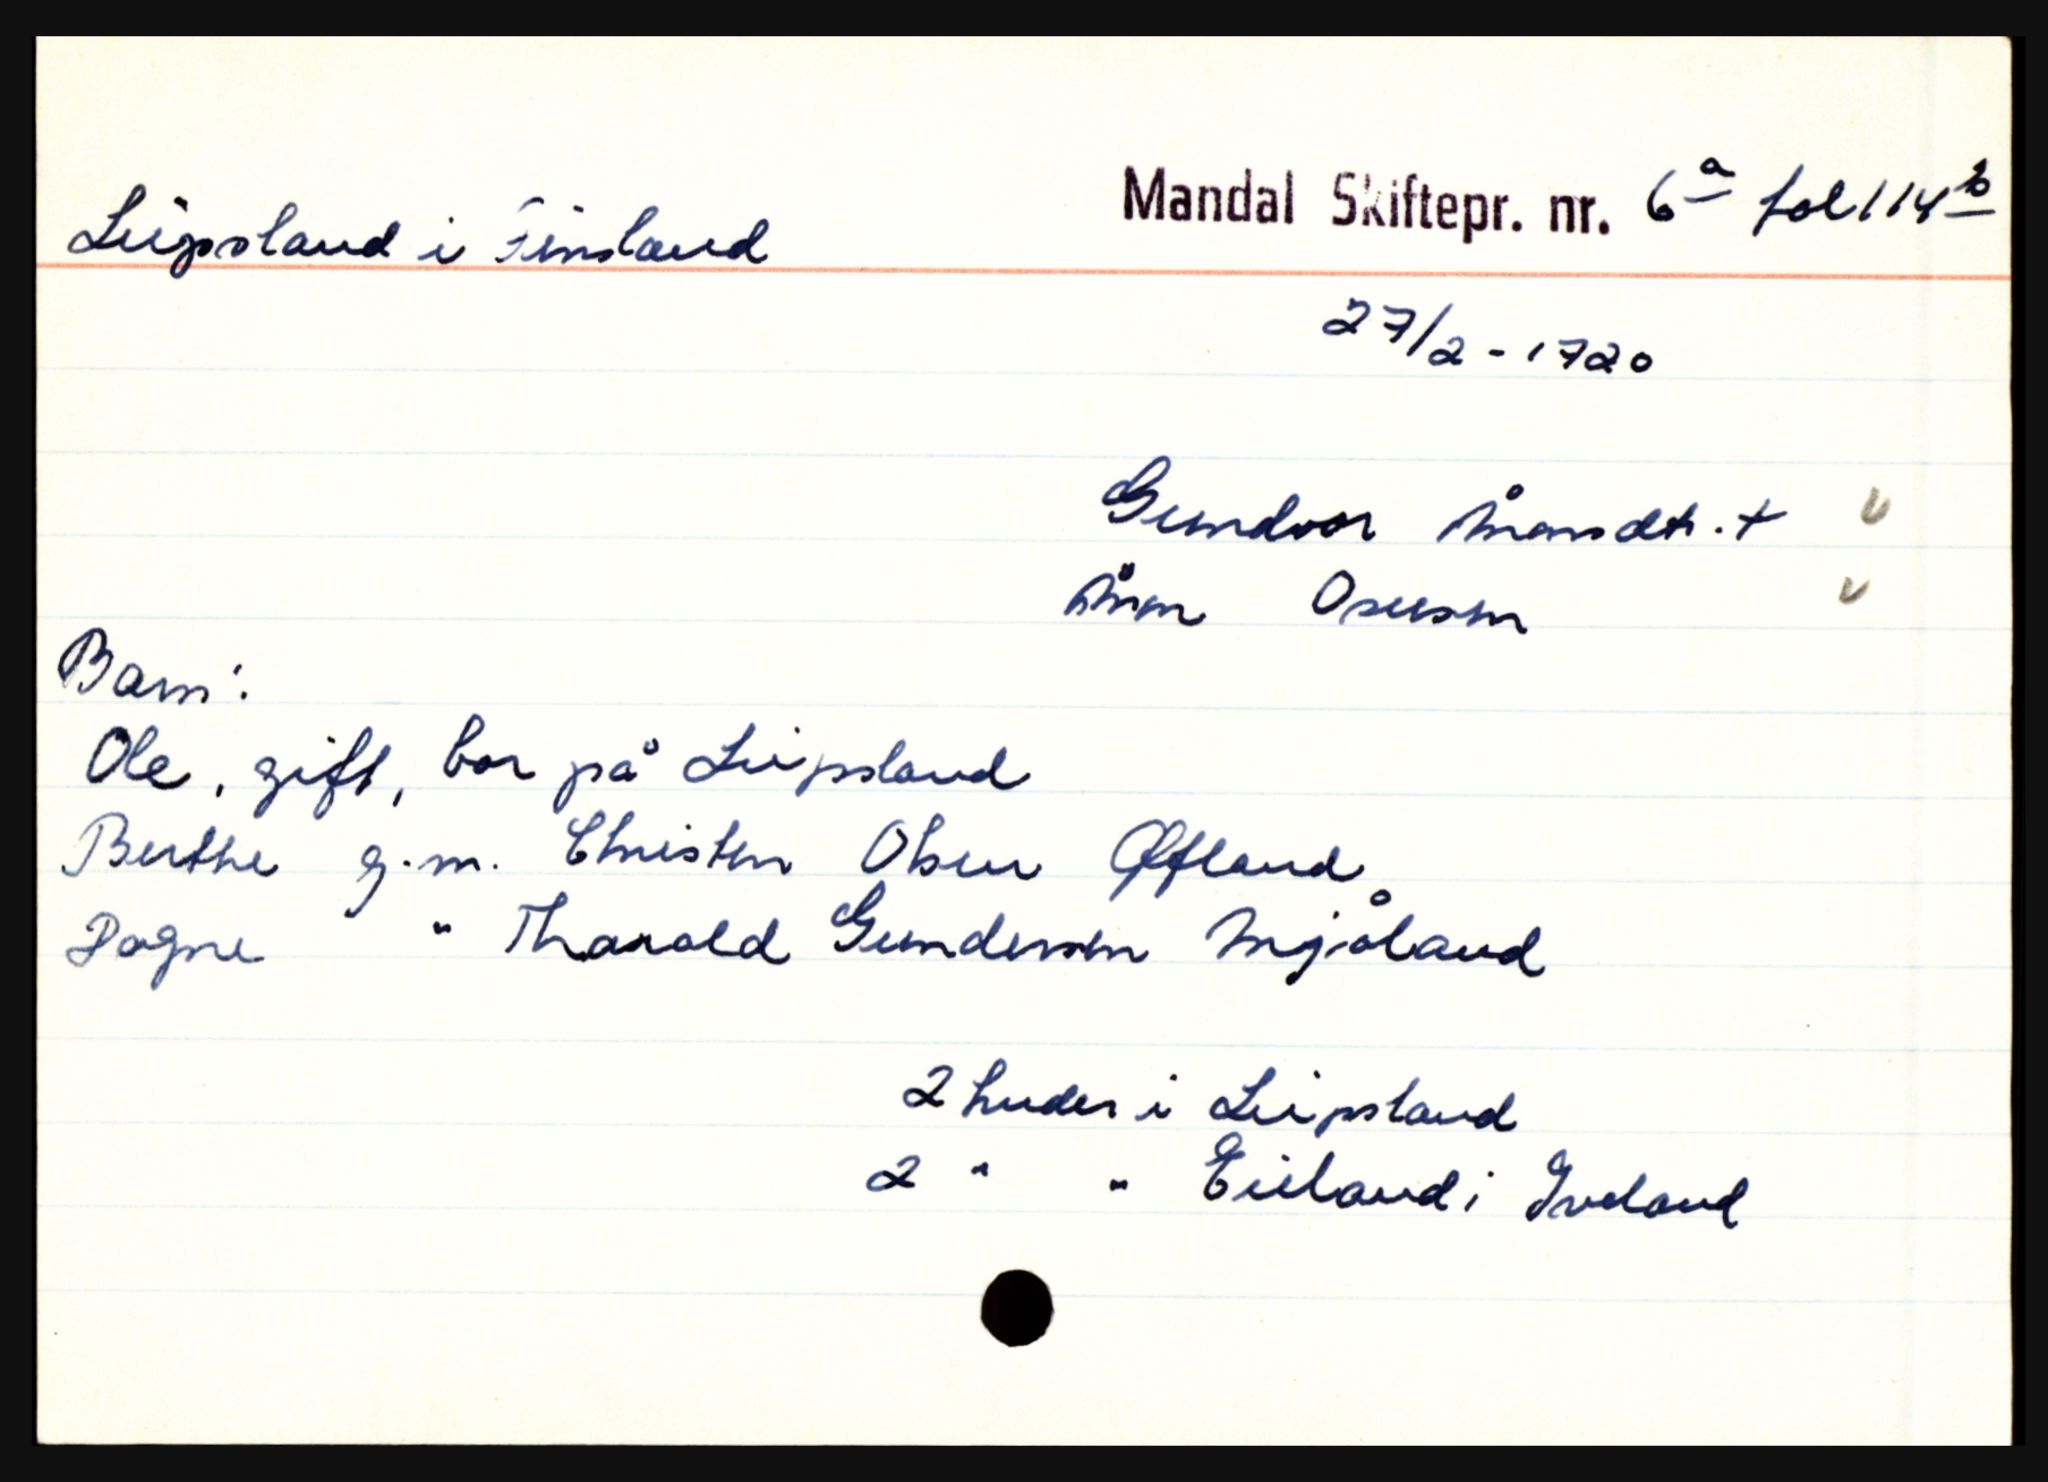 Liipsland i Finsland
Mandal Skiftepr. nr. 6a fol 114b
27/2 - 1720
Gundvor Månsdtr. +
Ånen Osusen
Barn:
Ole, gift, bor på Liipsland
Berthe g.m. Christen Olsen Øfland
Dogne " Tharald Gundersen Mjåland
2 huder i Liipsland
2 " " Eieland i Iveland